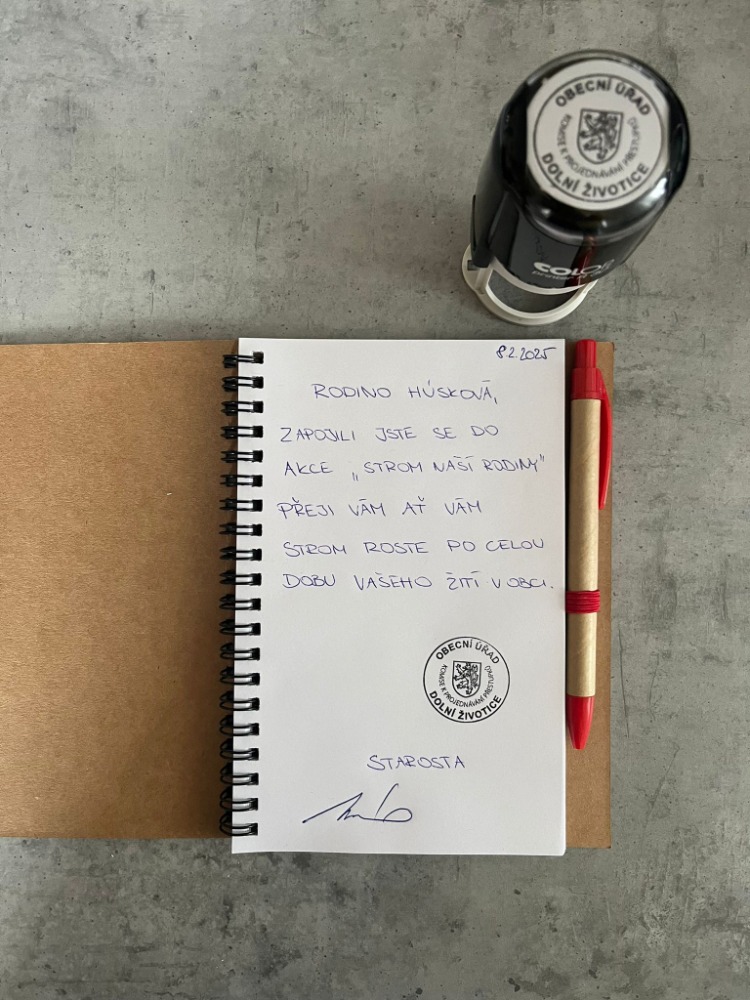 OBECNÍ ÚŘAD
KOMISE K PROJEDNÁVÁNÍ PŘESTUPKŮ
DOLNÍ ŽIVOTICE
COLOP
8.2.2025
RODINO HÚSKOVÁ,
ZAPOJILI JSTE SE DO
AKCE „STROM NAŠÍ RODINY"
PŘEJI VÁM AŤ VÁM
STROM ROSTE PO CELOU
DOBU VAŠEHO ŽITÍ V OBCI.
OBECNÍ ÚŘAD
KOMISE K PROJEDNÁVÁNÍ PŘESTUPKŮ
DOLNÍ ŽIVOTICE
STAROSTA